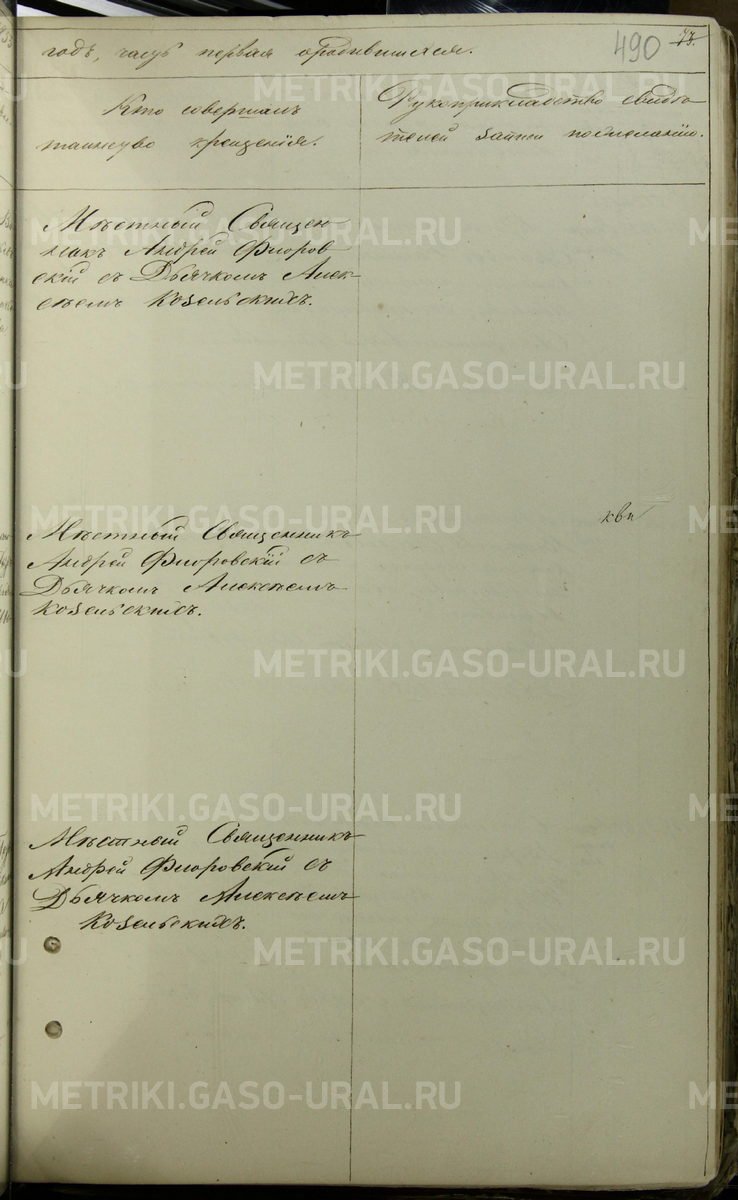 годъ, часть первая о родившихся.
490
73.
Кто совершалъ
таинство крещенія.
Рукоприкладство свидѣ
телей записи по желанію.
Мѣстный Священ
никъ Андрей Флоров
скій съ Дьячкомъ Алек
сѣемъ Козельскихъ.
кви
Мѣстный Священникъ
Андрей Флоровскій съ
Дьячкомъ Алексѣемъ
Козельскихъ.
Мѣстный Священникъ
Андрей Флоровскій съ
Дьячкомъ Алексѣемъ
Козельскихъ.
METRIKI.GASO-URAL.RU